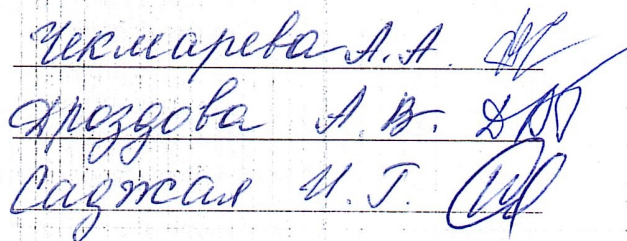 Чекмарева А.А.
Дроздова А.В.
Саджая И.Г.